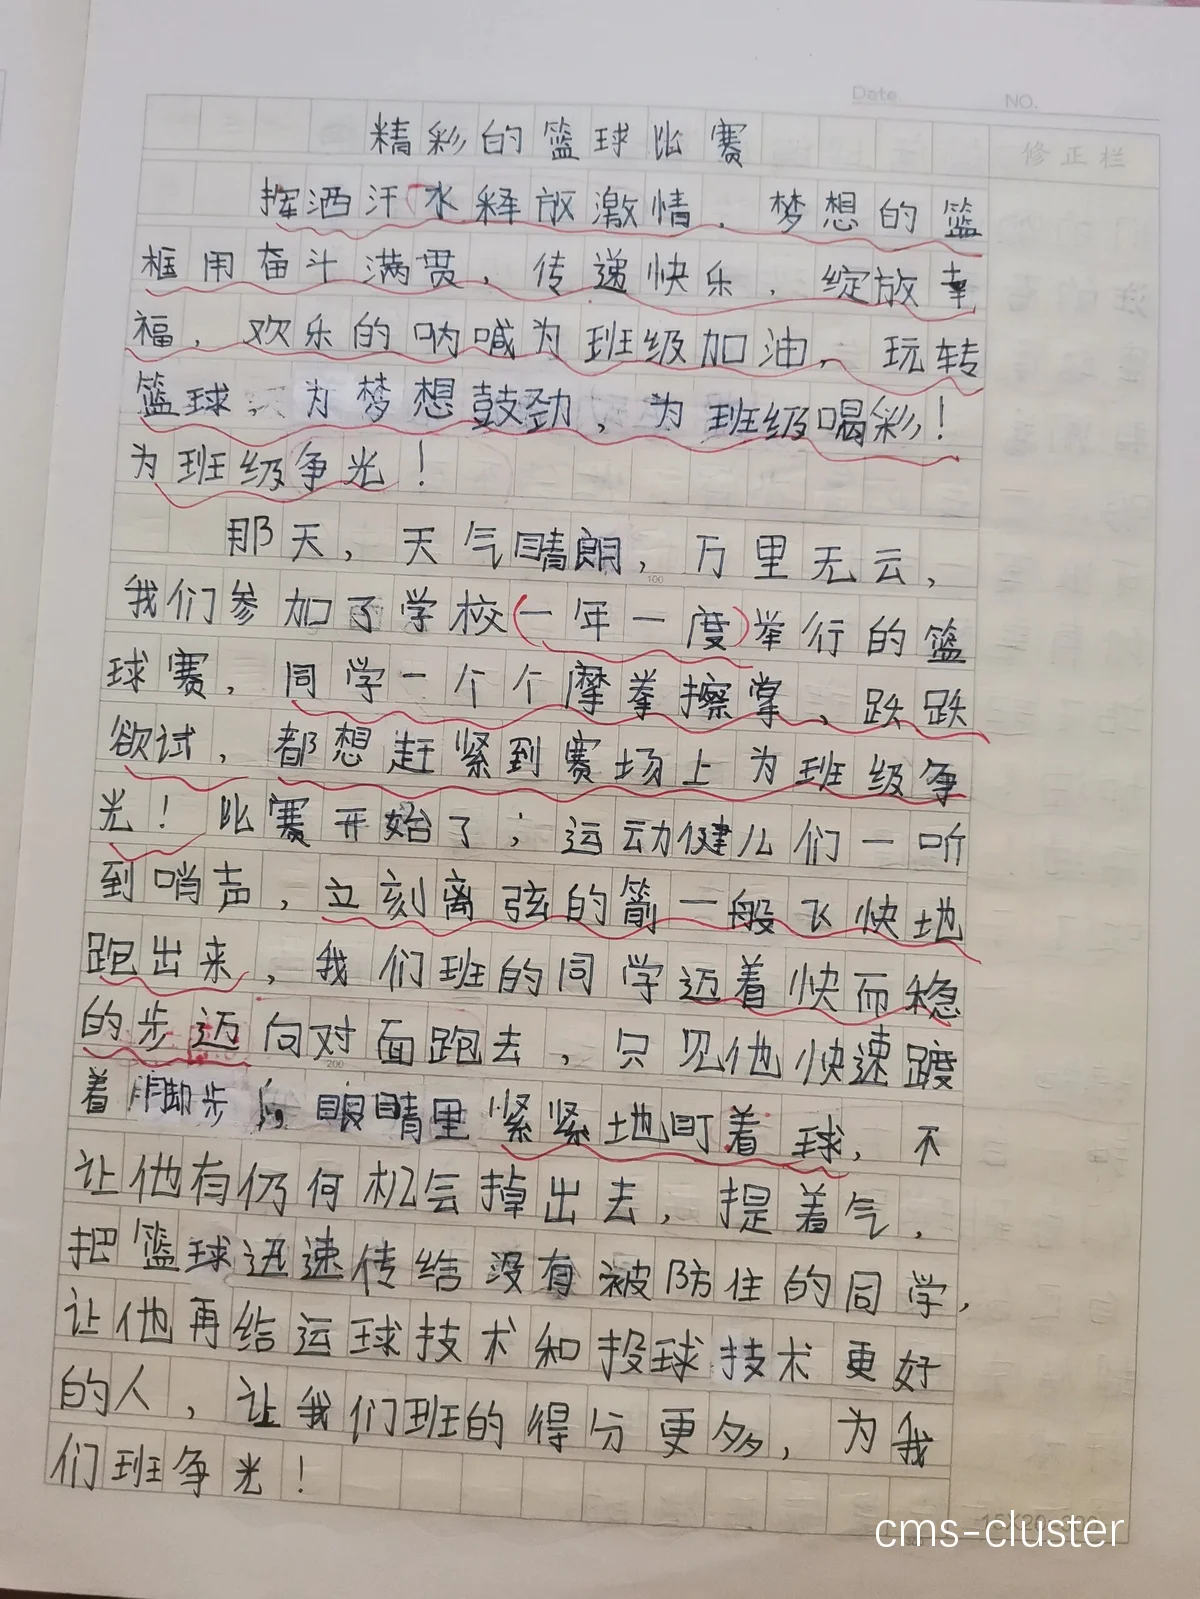 Date NO.
修正栏
精彩的篮球比赛
挥洒汗水释放激情，梦想的篮
框用奋斗满贯，传递快乐，绽放幸
福，欢乐的呐喊为班级加油，玩转
篮球 为梦想鼓劲，为班级喝彩！
为班级争光！
那天，天气晴朗，万里无云，
100
我们参加了学校(一年一度)举行的篮
球赛，同学一个个摩拳擦掌、跃跃
欲试，都想赶紧到赛场上为班级争
光！比赛开始了；运动健儿们一听
到哨声，立刻离弦的箭一般飞快地
跑出来，我们班的同学迈着快而稳
的步迈向对面跑去，只见他快速踱
200
着脚步，眼睛里紧紧地盯着球，不
让他有仍何机会掉出去，提着气，
把篮球迅速传给没有被防住的同学，
让他再给运球技术和投球技术更好
的人，让我们班的得分更多，为我
们班争光！
cms-cluster